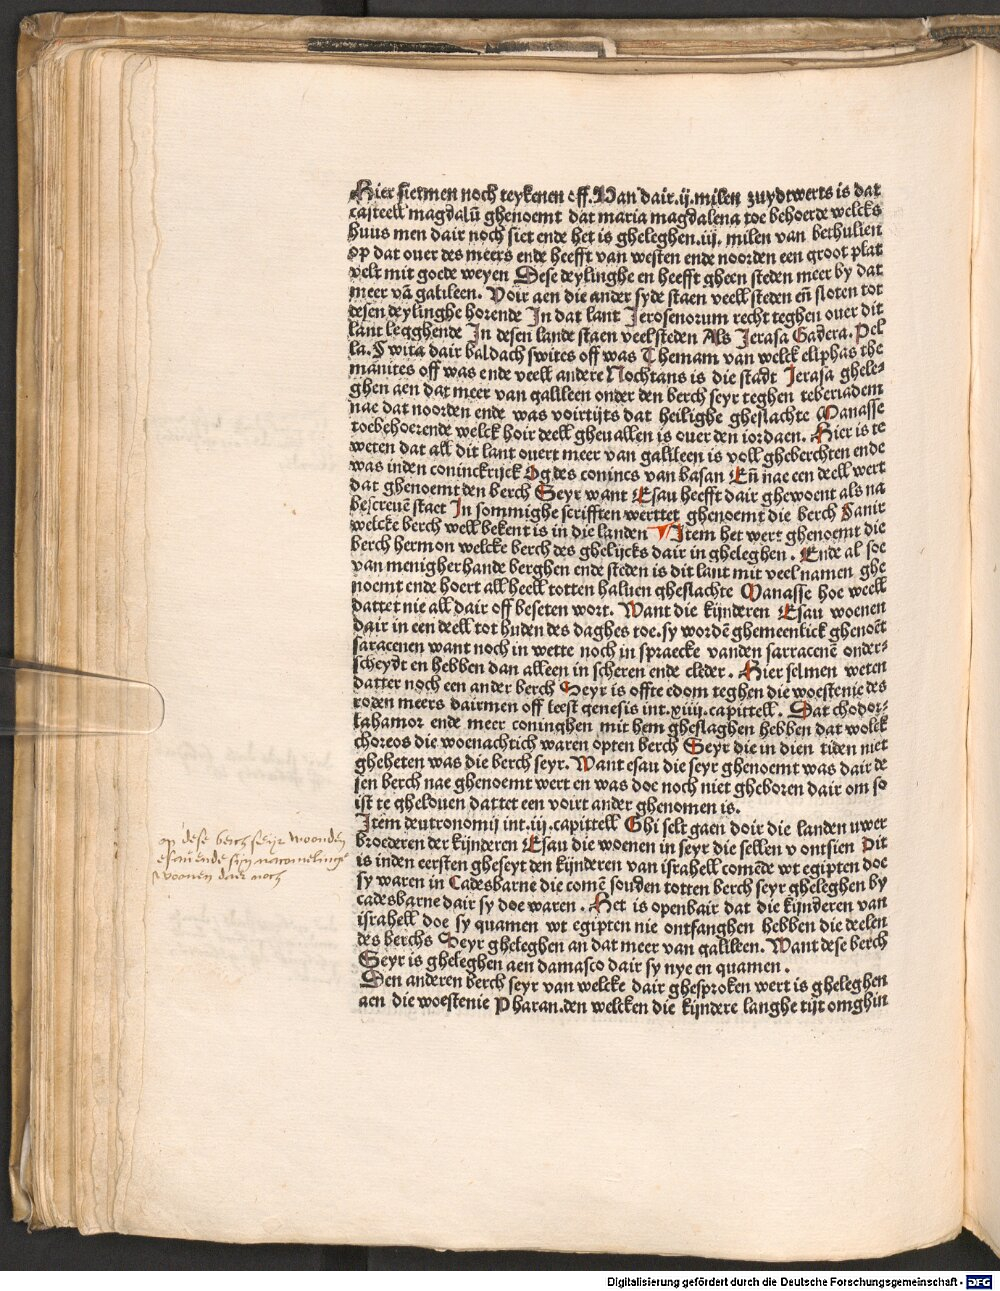 Hier sietmen noch teykenen off. Van dair .ij. milen zuydtwerts is dat
casteell magdalū ghenoemt dat maria magdalena toe behoerde welcks
huus men dair noch siet ende het is gheleghen .iij. milen van bethulien
op dat ouer des meers ende heefft van westen ende noorden een groot plat
velt mit goede weyen Dese deylinghe en heefft gheen steden meer by dat
meer vā galileen. Voir aen die ander syde staen veell steden eñ sloten tot
desen deylinghe horende In dat lant Jerosenorum recht teghen ouer dit
lant legghende In desen lande staen veel steden Als Jerasa Gadera. Pel
la. Swita dair baldach swites off was Themam van welck eliphas the
manites off was ende veell andere Nochtans is die stadt Jerasa ghele-
ghen aen dat meer van galileen onder den berch seyr teghen teberiadem
nae dat noorden ende was voirtijts dat heilighe gheslachte Manasse
toebehoerende welck hoir deell gheuallen is ouer den iordaen. Hier is te
weten dat all dit lant ouert meer van galileen is voll gheberchten ende
was inden coninckrijck Og des conincs van basan Eñ nae een deell wert
dat ghenoemt den berch Seyr want Esau heefft dair ghewoent als na
bescreuē staet In sommighe scrifften werttet ghenoemt die berch Sanir
welcke berch well bekent is in die landen Item het wert ghenoemt die
berch hermon welcke berch des ghelijcks dair in gheleghen. Ende al soe
van menigherhande berghen ende steden is dit lant mit veel namen ghe
noemt ende hoert all heell totten haluen gheslachte Manasse hoe weell
dattet nie all dair off beseten wort. Want die kijnderen Esau woenen
dair in een deell tot huden des daghes toe. sy wordē ghemeenlick ghenoēt
saracenen want noch in wette noch in spraecke vanden sarracenē onder-
scheydt en hebben dan alleen in scheren ende cleder. Hier selmen weten
datter noch een ander berch Seyr is offte edom teghen die woestenie des
roden meers dairmen off leest genesis int .xiiij. capittell. Dat chodor-
lahamor ende meer coninghen mit hem gheslaghen hebben dat wolck
choreos die woenachtich waren opten berch Seyr die in dien tiden niet
gheheten was die berch seyr. Want esau die seyr ghenoemt was dair de
sen berch nae ghenoemt wert en was doe noch niet gheboren dair om so
ist te ghelouen dattet een voirt ander ghenomen is.
Item deutronomij int .iij. capittell Ghi selt gaen doir die landen uwer
broederen der kijnderen Esau die woenen in seyr die sellen v ontsien Dit
is inden eersten gheseyt den kijnderen van israhell comēde wt egipten doe
sy waren in Cadesbarne die comē souden totten berch seyr gheleghen by
cadesbarne dair sy doe waren. Het is openbair dat die kijnderen van
israhell doe sy quamen wt egipten nie ontfanghen hebben die deelen
des berchs Seyr gheleghen an dat meer van galileen. Want dese berch
Seyr is gheleghen aen damasco dair sy nye en quamen.
Den anderen berch seyr van welcke dair ghesproken wert is gheleghen
aen die woestenie Pharan. den welcken die kijndere langhe tijt omghin
op dese berch seyr woonden
esau ende sijn nacomelinge
woonen dair noch
Digitalisierung gefördert durch die Deutsche Forschungsgemeinschaft - DFG